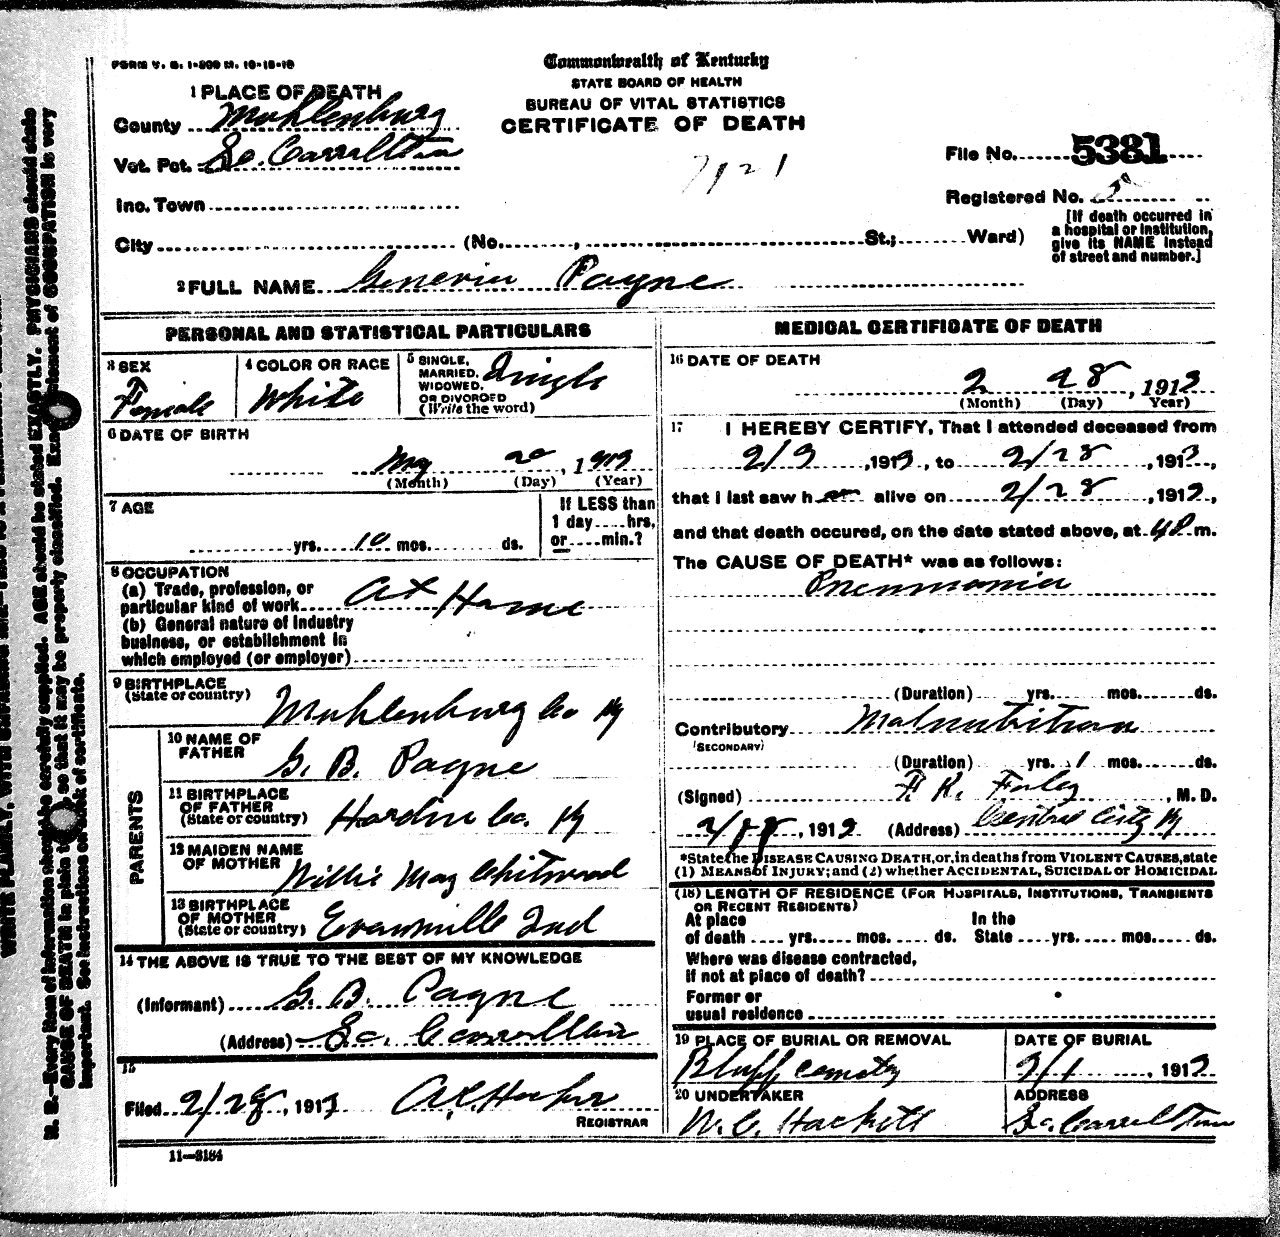 FORM V. S. 1-200 M. 10-18-10
Commonwealth of Kentucky
STATE BOARD OF HEALTH
BUREAU OF VITAL STATISTICS
CERTIFICATE OF DEATH
1 PLACE OF DEATH
County Muhlenburg
Vot. Pct. So. Carrollton
Inc. Town
City (No. , St.; Ward)
7121
File No. 5381
Registered No.
[If death occurred in
a hospital or institution,
give its NAME instead
of street and number.]
2 FULL NAME Payne
PERSONAL AND STATISTICAL PARTICULARS
3 SEX
Female
4 COLOR OR RACE
White
5 SINGLE,
MARRIED,
WIDOWED,
OR DIVORCED
(Write the word)
Single
6 DATE OF BIRTH
May 20, 1
(Month) (Day) (Year)
7 AGE
yrs. 10 mos. ds.
If LESS than
1 day hrs,
or min.?
8 OCCUPATION
(a) Trade, profession, or
particular kind of work At Home
(b) General nature of industry
business, or establishment in
which employed (or employer)
9 BIRTHPLACE
(State or country) Muhlenburg Co Ky
PARENTS
10 NAME OF
FATHER G. B. Payne
11 BIRTHPLACE
OF FATHER
(State or country) Hardin Co. Ky
12 MAIDEN NAME
OF MOTHER Willie May Whitmead
13 BIRTHPLACE
OF MOTHER
(State or country) Evansville Ind
14 THE ABOVE IS TRUE TO THE BEST OF MY KNOWLEDGE
(Informant) G. B. Payne
(Address) So. Carrollton
15
Filed 2/28, 191
REGISTRAR
11-3184
MEDICAL CERTIFICATE OF DEATH
16 DATE OF DEATH
2 28, 191
(Month) (Day) Year)
17 I HEREBY CERTIFY, That I attended deceased from
2/9, 191 , to 2/28, 191 ,
that I last saw her alive on 2/28, 191 ,
and that death occured, on the date stated above, at 4P m.
The CAUSE OF DEATH* was as follows:
Pneumonia
(Duration) yrs. mos. ds.
Contributory Malnutrition
(SECONDARY)
(Duration) yrs. 1 mos. ds.
(Signed) F. K. , M. D.
, 191 (Address) Central City Ky
*State the DISEASE CAUSING DEATH, or, in deaths from VIOLENT CAUSES, state
(1) MEANS of INJURY; and (2) whether ACCIDENTAL, SUICIDAL or HOMICIDAL
(18) LENGTH OF RESIDENCE (FOR HOSPITALS, INSTITUTIONS, TRANSIENTS
OR RECENT RESIDENTS)
At place
of death yrs. mos. ds.
In the
State yrs. mos. ds.
Where was disease contracted,
if not at place of death?
Former or
usual residence
19 PLACE OF BURIAL OR REMOVAL
Bluff cemetery
DATE OF BURIAL
3/1, 191
20 UNDERTAKER
W. C. Hackett
ADDRESS
So. Carrollton
WRITE PLAINLY, WITH UNFADING INK
N. B.—Every item of information should be carefully supplied. AGE should be stated EXACTLY. PHYSICIANS should state
CAUSE OF DEATH in plain terms so that it may be properly classified. Exact statement of OCCUPATION is very
important. See instructions on back of certificate.